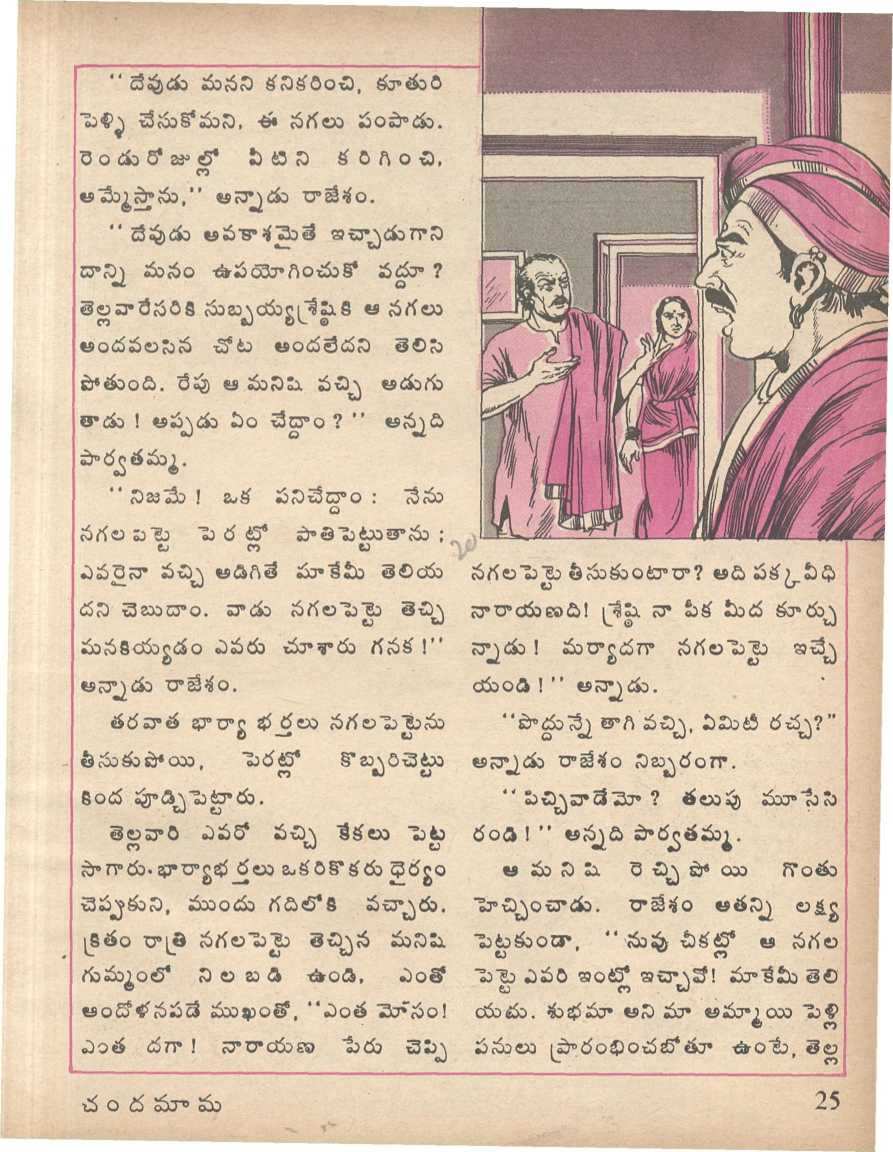 ‘‘దేవుడు మనని కనికరించి, కూతురి
పెళ్ళి చేసుకోమని, ఈ నగలు పంపాడు.
రెండురోజుల్లో వీటిని కరిగించి,
అమ్మేస్తాను,’’ అన్నాడు రాజేశం.
‘‘దేవుడు అవకాశమైతే ఇచ్చాడుగాని
దాన్ని మనం ఉపయోగించుకో వద్దూ?
తెల్లవారేసరికి సుబ్బయ్యశ్రేష్ఠికి ఆ నగలు
అందవలసిన చోట అందలేదని తెలిసి
పోతుంది. రేపు ఆ మనిషి వచ్చి అడుగు
తాడు! అప్పడు ఏం చేద్దాం?’’ అన్నది
పార్వతమ్మ.
‘‘నిజమే! ఒక పనిచేద్దాం: నేను
నగలపెట్టె పెరట్లో పాతిపెట్టుతాను;
ఎవరైనా వచ్చి అడిగితే మాకేమీ తెలియ
దని చెబుదాం. వాడు నగలపెట్టె తెచ్చి
మనకియ్యడం ఎవరు చూశారు గనక!’’
అన్నాడు రాజేశం.
తరవాత భార్యా భర్తలు నగలపెట్టెను
తీసుకుపోయి, పెరట్లో కొబ్బరిచెట్టు
కింద పూడ్చిపెట్టారు.
తెల్లవారి ఎవరో వచ్చి కేకలు పెట్ట
సాగారు. భార్యాభర్తలు ఒకరికొకరు ధైర్యం
చెప్పుకుని, ముందు గదిలోకి వచ్చారు.
క్రితం రాత్రి నగలపెట్టె తెచ్చిన మనిషి
గుమ్మంలో నిలబడి ఉండి, ఎంతో
ఆందోళనపడే ముఖంతో, ‘‘ఎంత మోసం!
ఎంత దగా! నారాయణ పేరు చెప్పి
20
నగలపెట్టె తీసుకుంటారా? అది పక్కవీధి
నారాయణది! శ్రేష్ఠి నా పీక మీద కూర్చు
న్నాడు! మర్యాదగా నగలపెట్టె ఇచ్చే
యండి!’’ అన్నాడు.
‘‘పొద్దున్నే తాగి వచ్చి, ఏమిటీ రచ్చ?’’
అన్నాడు రాజేశం నిబ్బరంగా.
‘‘పిచ్చివాడేమో? తలుపు మూసేసి
రండి!’’ అన్నది పార్వతమ్మ.
ఆ మనిషి రెచ్చిపోయి గొంతు
హెచ్చించాడు. రాజేశం అతన్ని లక్ష్య
పెట్టకుండా, ‘‘నువు చీకట్లో ఆ నగల
పెట్టె ఎవరి ఇంట్లో ఇచ్చావో! మాకేమీ తెలి
యదు. శుభమా అని మా అమ్మాయి పెళ్లి
పనులు ప్రారంభించబోతూ ఉంటే, తెల్ల
చందమామ
25